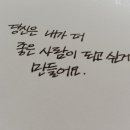 당신은 내가 더
좋은 사람이 되고 싶게
만들어요.